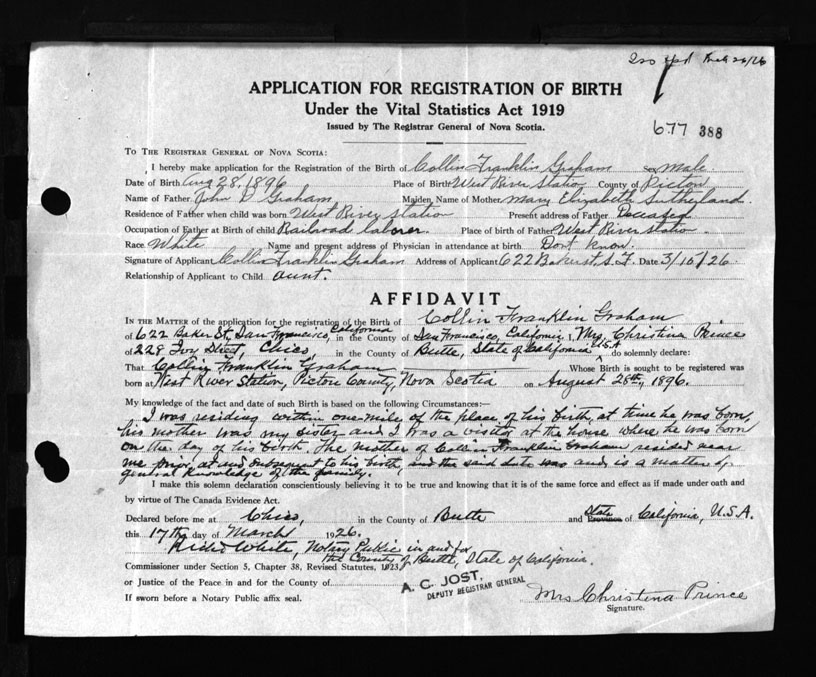 APPLICATION FOR REGISTRATION OF BIRTH
Under the Vital Statistics Act 1919
Issued by The Registrar General of Nova Scotia.
677 388
TO THE REGISTRAR GENERAL OF NOVA SCOTIA:
I hereby make application for the Registration of the Birth of Collin Franklin Graham Sex Male.
Date of Birth Aug 28, 1896 Place of Birth West River Station County of Pictou
Name of Father John D Graham Maiden Name of Mother Mary Elizabeth Sutherland
Residence of Father when child was born West River Station Present address of Father Deceased
Occupation of Father at Birth of child Railroad laborer. Place of birth of Father West River Station.
Race White Name and present address of Physician in attendance at birth Dont know.
Signature of Applicant Collin Franklin Graham Address of Applicant 622 Baker st. S.F. Date 3/10/26.
Relationship of Applicant to Child aunt.
AFFIDAVIT
IN THE MATTER of the application for the registration of the Birth of Collin Franklin Graham
of 622 Baker St, San Francisco, California in the County of San Francisco, California I, Mrs. Christina Prince
of 228 Ivy Street, Chico, in the County of Butte, State of California U.S.A. do solemnly declare:
That Collin Franklin Graham Whose Birth is sought to be registered was
born at West River Station, Pictou County, Nova Scotia on August 28th, 1896.
My knowledge of the fact and date of such Birth is based on the following Circumstances:—
I was residing within one mile of the place of his birth, at time he was born,
his mother was my sister and I was a visitor at the house where he was born
on the day of his birth. The mother of Collin Franklin Graham resided near
me prior, at and subsequent to his birth, and the said date was and is a matter of
general knowledge of the family.
I make this solemn declaration conscientiously believing it to be true and knowing that it is of the same force and effect as if made under oath and
by virtue of The Canada Evidence Act.
Declared before me at Chico, in the County of Butte and State Province of California, U.S.A.
this 17th day of March 1926.
White, Notary Public in and for
the County of Butte, State of California.
Commissioner under Section 5, Chapter 38, Revised Statutes, 1923
or Justice of the Peace in and for the County of
A. C. JOST,
DEPUTY REGISTRAR GENERAL
If sworn before a Notary Public affix seal.
Mrs Christina Prince
Signature.